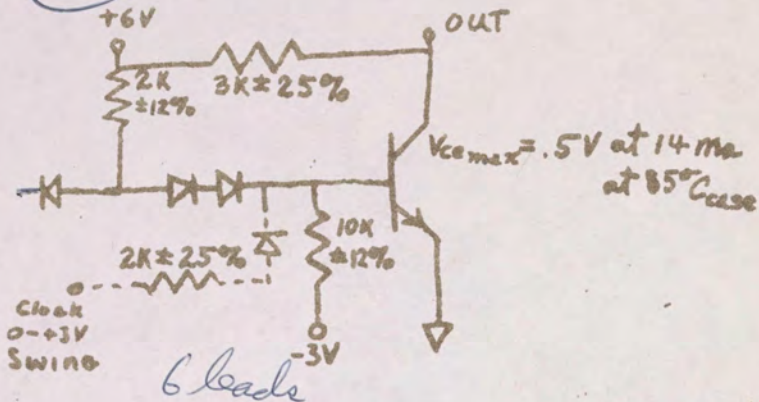 +6V
OUT
2K
±12%
3K±25%
Vce max = .5V at 14 ma
at 85°C case
2K±25%
10K
±12%
Clock
0-+3V
Swing
-3V
6 leads